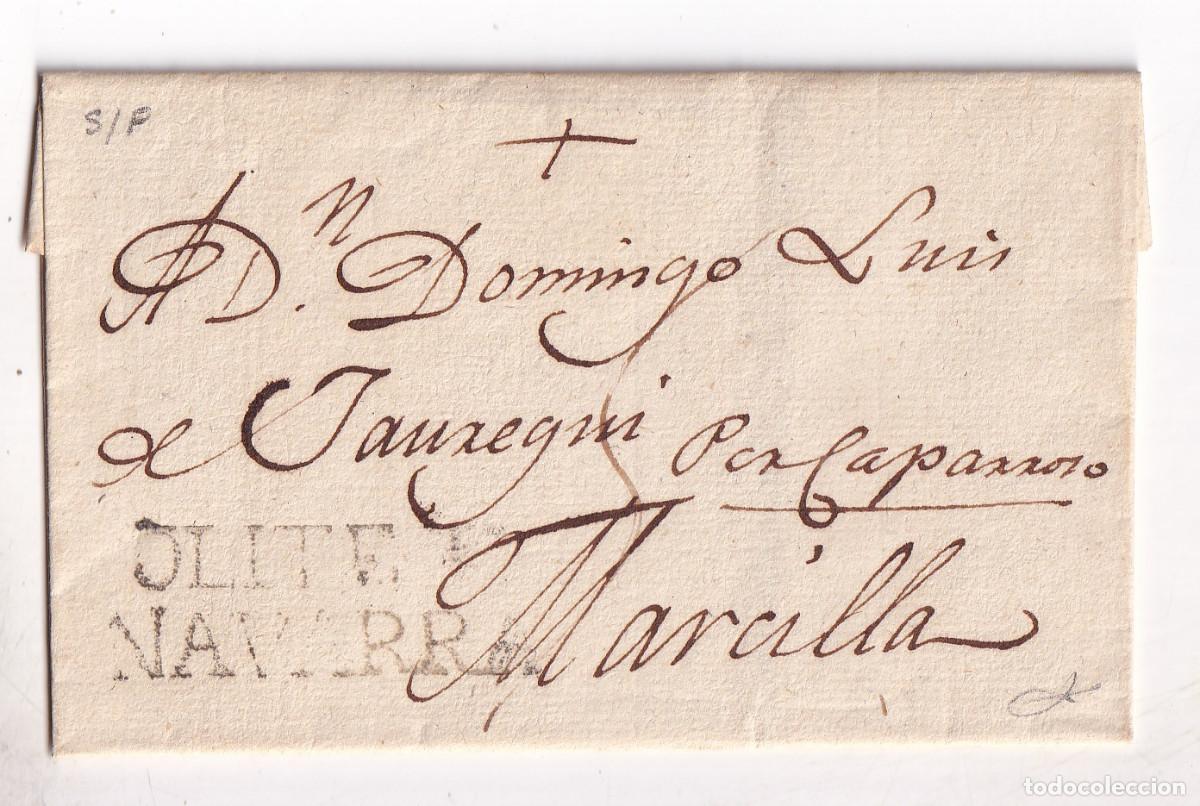 S/F
+
A D.n Domingo Luis
de Jauregui Por Caparroso
Marcilla
OLITE
NAVARRA
todocoleccion